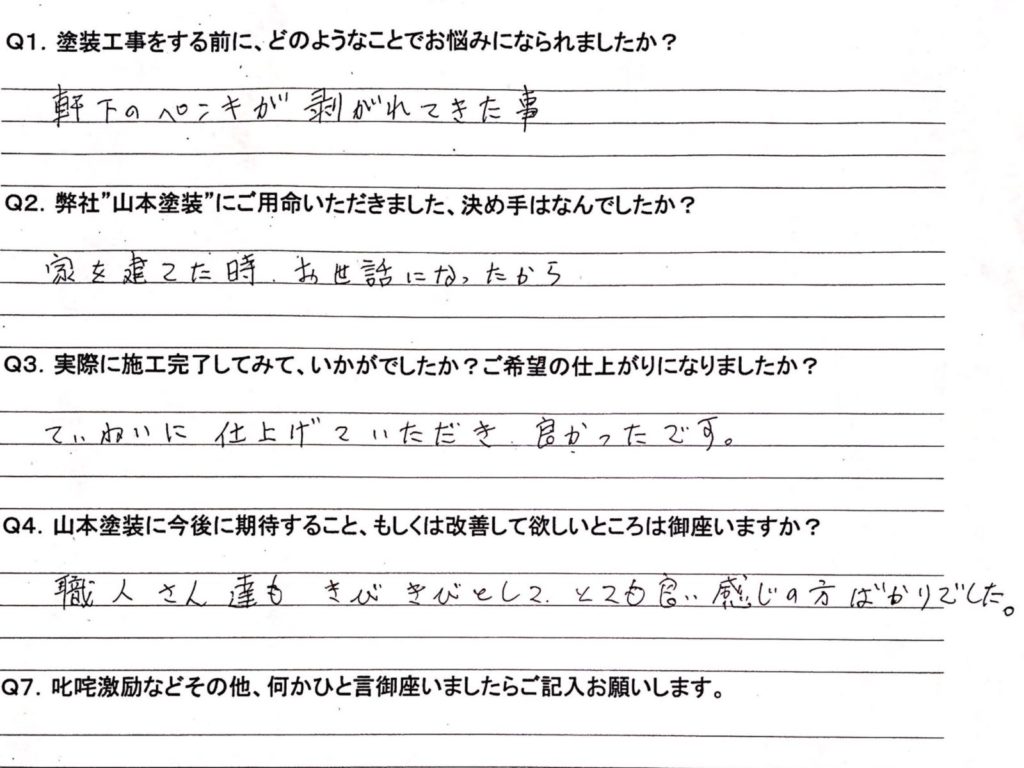 Q1. 塗装工事をする前に、どのようなことでお悩みになられましたか？
軒下のペンキが剥がれてきた事
Q2. 弊社”山本塗装”にご用命いただきました、決め手はなんでしたか？
家を建てた時、お世話になったから
Q3. 実際に施工完了してみて、いかがでしたか？ご希望の仕上がりになりましたか？
ていねいに仕上げていただき、良かったです。
Q4. 山本塗装に今後に期待すること、もしくは改善して欲しいところは御座いますか？
職人さん達もきびきびとして、とても良い感じの方ばかりでした。
Q7. 叱咤激励などその他、何かひと言御座いましたらご記入お願いします。